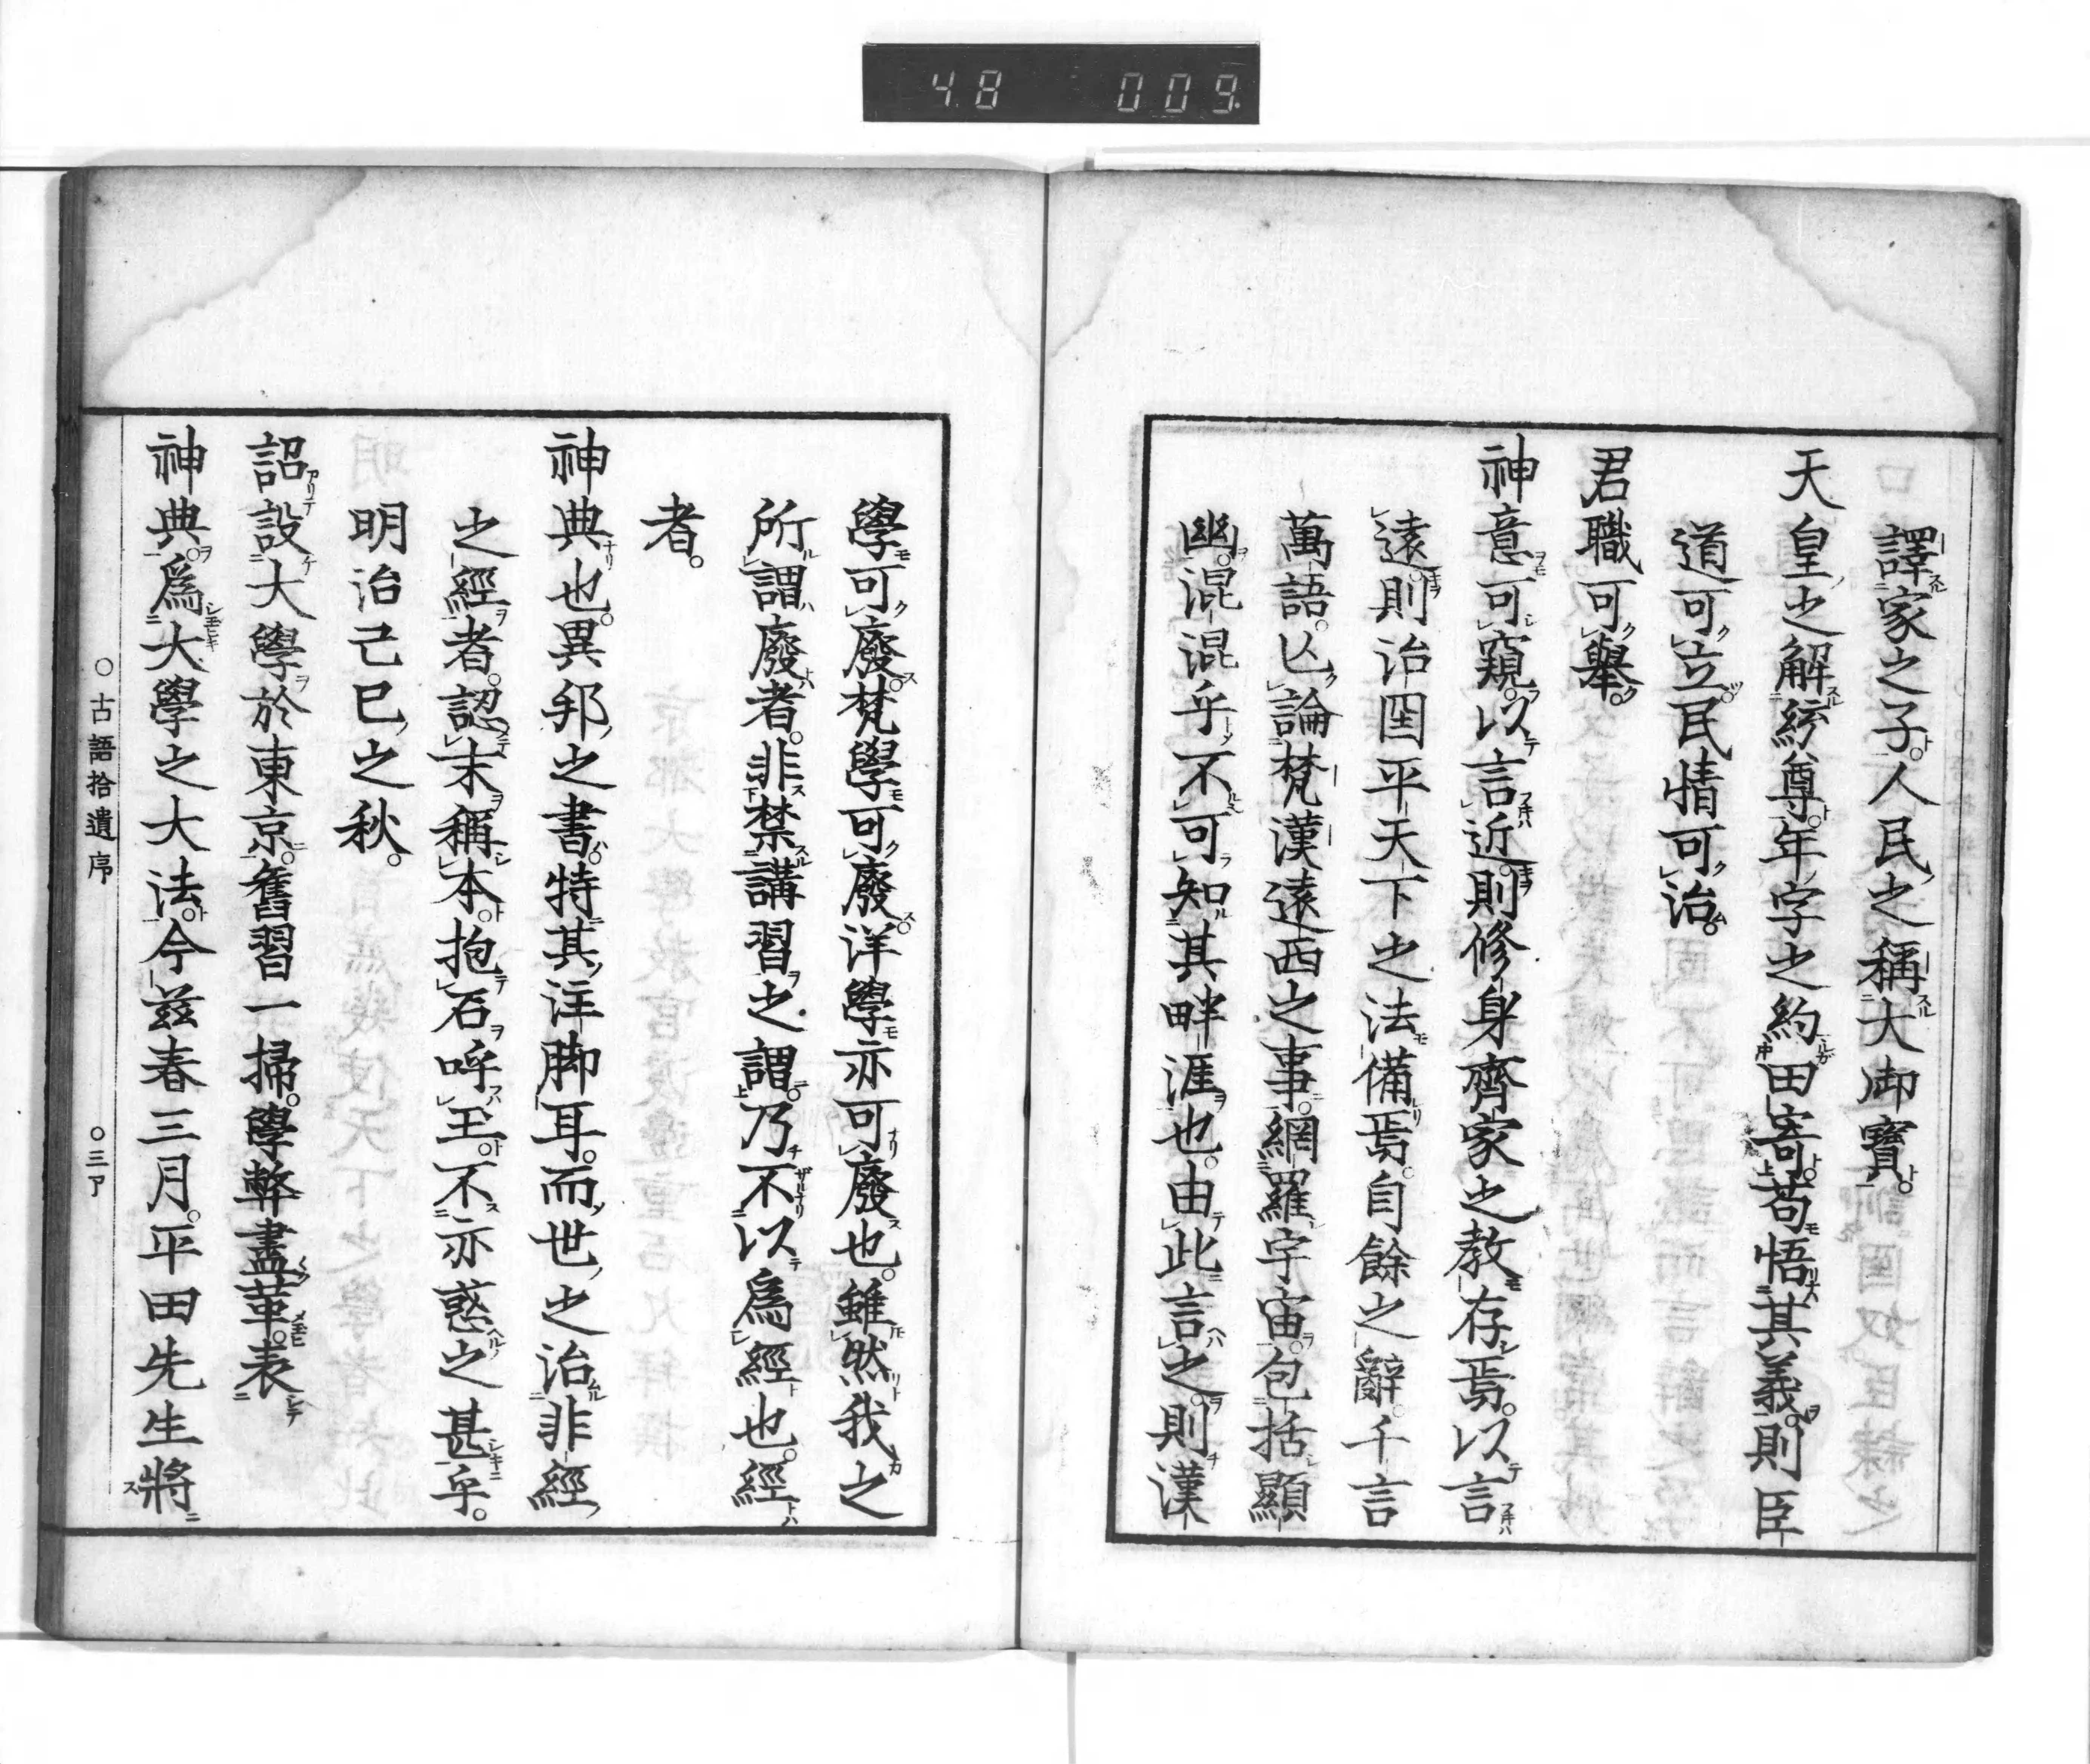 48 009
譯家之子。人民之稱大御寶。
天皇之解統尊。年字之約田寄。苟悟其義。則臣
道可立。民情可治。
君職可擧。
神意可窺。以言近。則修身齊家之教存焉。以言
遠。則治国平天下之法備焉。自餘之辭。千言
萬語。亡論梵漢遠西之事。網羅宇宙。包括顯
幽。混混乎不可知其畔涯也。由此言之。則漢
學可廢。梵學可廢。洋學亦可廢也。雖然我之
所謂廢者。非禁講習之謂。乃不以爲經也。經
者。
神典也。異邦之書。特其注脚耳。而世之治非經
之經者。認末稱本。抱石呼玉。不亦惑之甚乎。
明治己巳之秋。
詔設大學於東京。舊習一掃。學弊盡革。表
神典。爲大學之大法。今茲春三月。平田先生將
○古語拾遺序 ○三丁